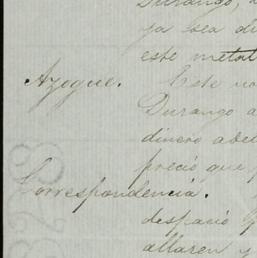 Durango,
ya sea di
este metal
Azogue. Este no
Durango a
dinero abe
precio que
Correspondencia.
despacio q
allaren y